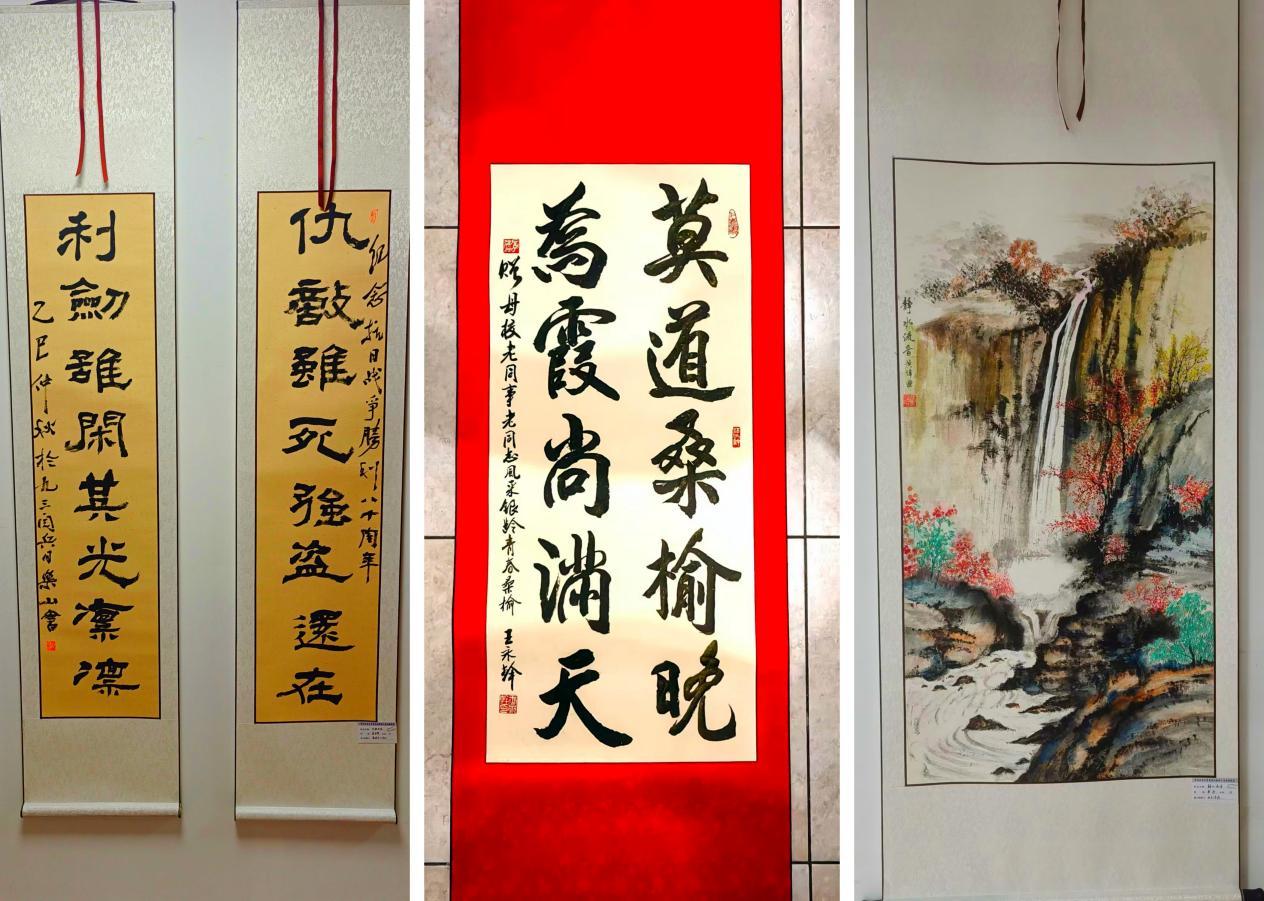 纪念抗日战争勝利八十周年
仇敵雖死強盗還在
利劍雖閑其光凛凛
乙巳仲秋於九三阅兵日樂山書
莫道桑榆晚
為霞尚滿天
赠母校老同事老同志風采银龄青春桑榆 王永
静水流音